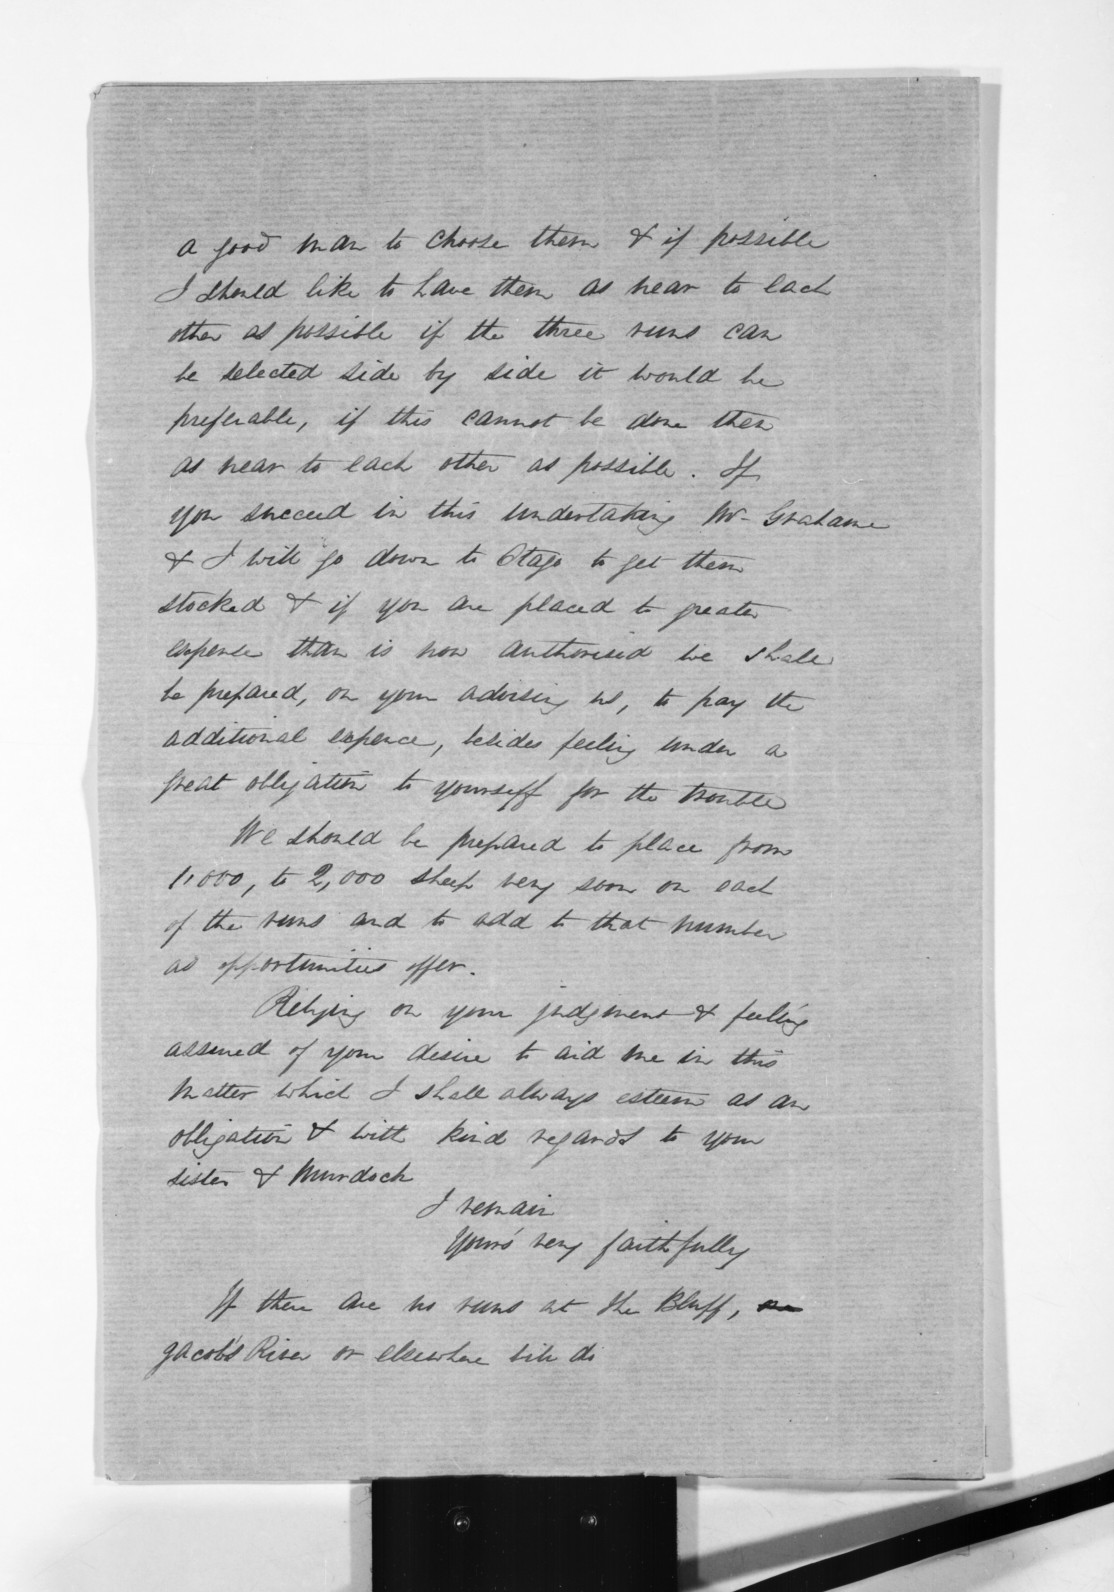 a good man to choose them & if possible
I should like to have them as near to each
other as possible if the three runs can
be selected side by side it would be
preferable, if this cannot be done then
as near to each other as possible. If
you succeed in this undertaking Mr Grahame
& I will go down to Otago to get them
stocked & if you are placed to greater
expense than is now authorised we shall
be prepared, on your advising us, to pay the
additional expence, besides feeling under a
great obligation to yourself for the trouble
We should be prepared to place from
1,000, to 2,000 sheep very soon on each
of the runs and to add to that number
as opportunities offer.
Relying on your judgment & feeling
assured of your desire to aid me in this
matter which I shall always esteem as an
obligation & with kind regards to your
sister & Murdoch
I remain
Yours very faithfully
If there are no runs at the Bluff,
Jacob's River or elsewhere